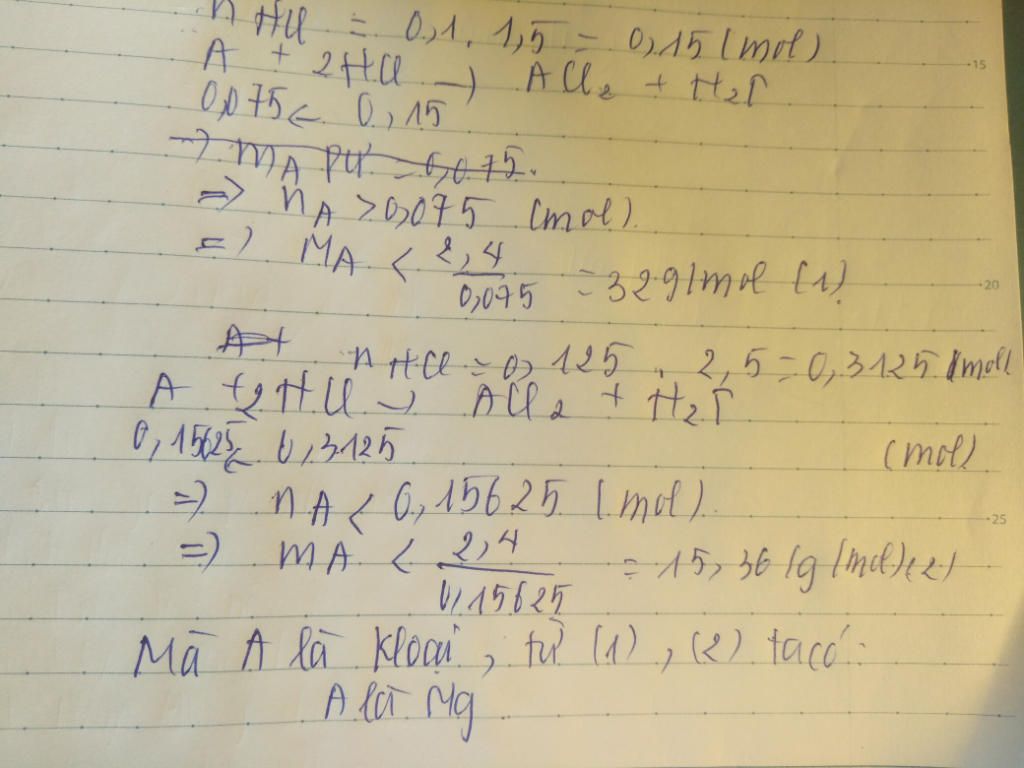 nHCl = 0,1. 1,5 = 0,15 (mol)
A + 2HCl → ACl2 + H2↑
0,075 ← 0,15
→ mA pư = 0,075.
=> nA > 0,075 (mol).
=> MA < 2,4/0,075 = 32 g/mol (1)
A+ nHCl = 0,125 . 2,5 = 0,3125 (mol)
A + 2HCl → ACl2 + H2↑
0,15625 ← 0,3125 (mol)
=> nA < 0,15625 (mol).
=> mA < 2,4/0,15625 = 15,36 (g/mol) (2)
Mà A là Kloại, từ (1), (2) ta có:
A là Mg
15
20
25